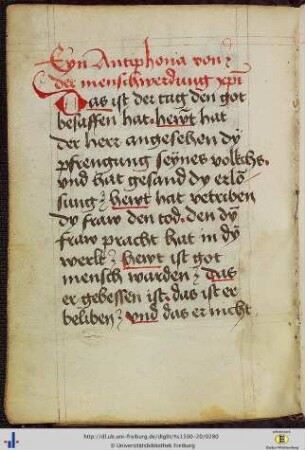 Eyn Antiphona von
der menschwerdung xpi
Das ist der tag den got
besaffen hat. hewt hat
der herr angesehen dy
pfrengung seynes volkchs.
vnd hat gesand dy erlo
sung hewt hat vetriben
dy fraw den tod. den dy
fraw pracht hat in dy
werlt hewt ist got
mensch warden das
er gebessen ist. das ist er
beliben vnd das er nicht
http://dl.ub.uni-freiburg.de/diglit/hs1500-20/0280
© Universitätsbibliothek Freiburg